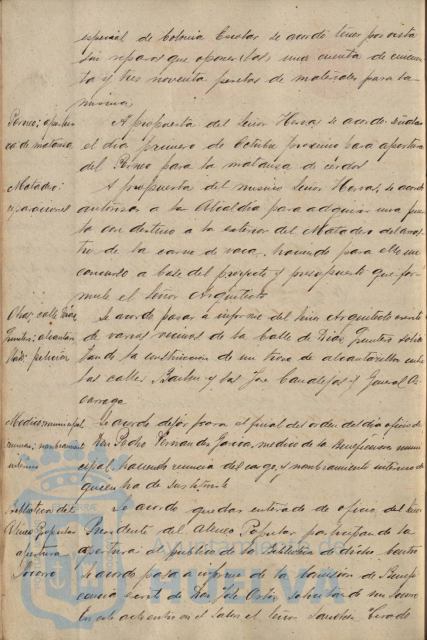 especial de Colonia Escolar se acordó tener por vista
sin reparos que oponerlas, una cuenta de cincuen-
ta y tres noventa pesetas de materiales para la
misma.
Porneo; apertu-
ra de matanza
A propuesta del señor Hervas se acordó señalar
el día primero de Octubre próximo para apertura
del Porneo para la matanza de cerdos
Matadero:
reparaciones
A propuesta del mismo señor Hervas, se acordó
autorizar a la Alcaldía para adquirir una puer-
ta con destino a la exterior del Matadero
de la carne de vaca, haciendo para ello un
concurso a base del proyecto y presupuesto que for-
mule el señor Arquitecto
petición
Se acordó pasar a informe del señor Arquitecto escrito
de varios vecinos de la Calle de Rias solici-
tando la construcción de un trozo de alcantarilla entre
las calles y General Az-
carraga
Medico municipal,
renuncia; nombramiento
interino
Se acordó dejar para el final del orden del día oficio de
Don Pedro Fernandez Garcia, medico de la Beneficencia muni-
cipal, haciendo renuncia del cargo, y nombramiento interino de
quien ha de sustituirle
Biblioteca del
Ateneo Popular
apertura
Se acordó quedar enterado de oficio del señor
Presidente del Ateneo Popular participando la
apertura al publico de la Biblioteca de dicho Centro
Socorro
Se acordó pasar a informe de la Comisión de Benefi-
cencia escrito de Don José Ortiz solicitando un socorro
En este acto entró en el Salon el señor Sanchez
Ayuntamiento de
HUELVA